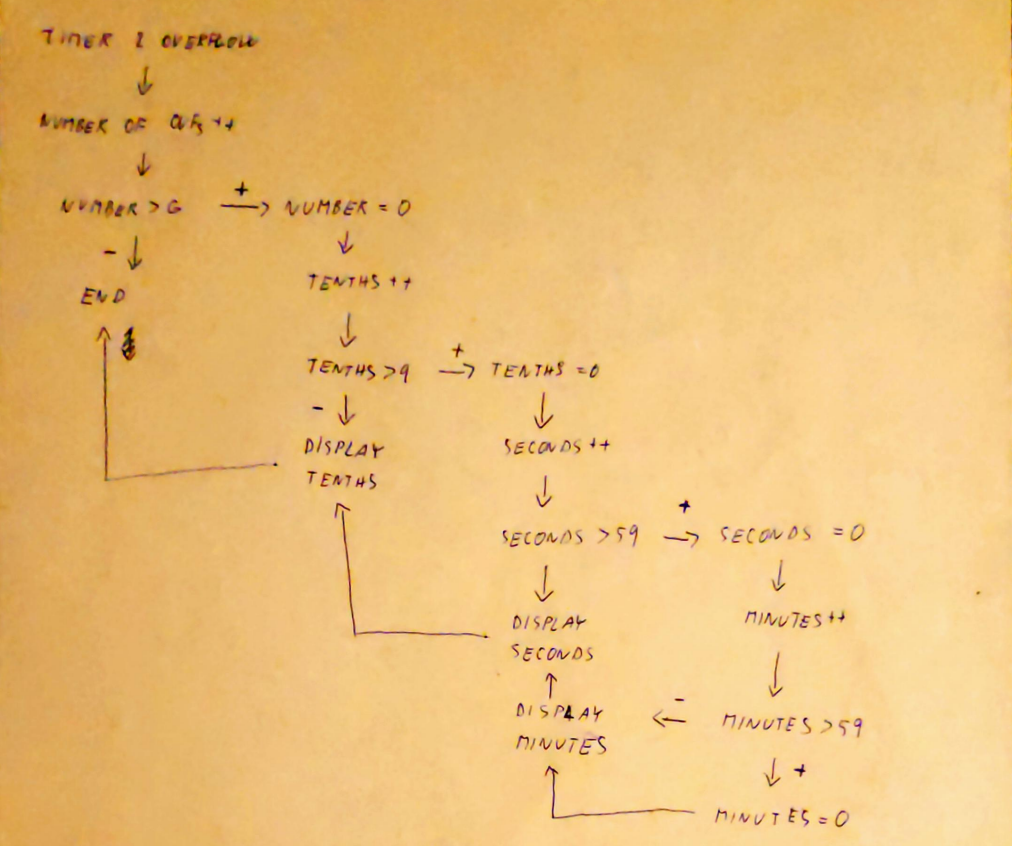 TIMER 2 OVERFLOW
NUMBER OF OVFs ++
NUMBER > 6 + NUMBER = 0
-
END
TENTHS ++
TENTHS > 9 + TENTHS = 0
-
DISPLAY
TENTHS
SECONDS ++
SECONDS > 59 + SECONDS = 0
DISPLAY
SECONDS
MINUTES ++
DISPLAY
MINUTES
- MINUTES > 59
+
MINUTES = 0